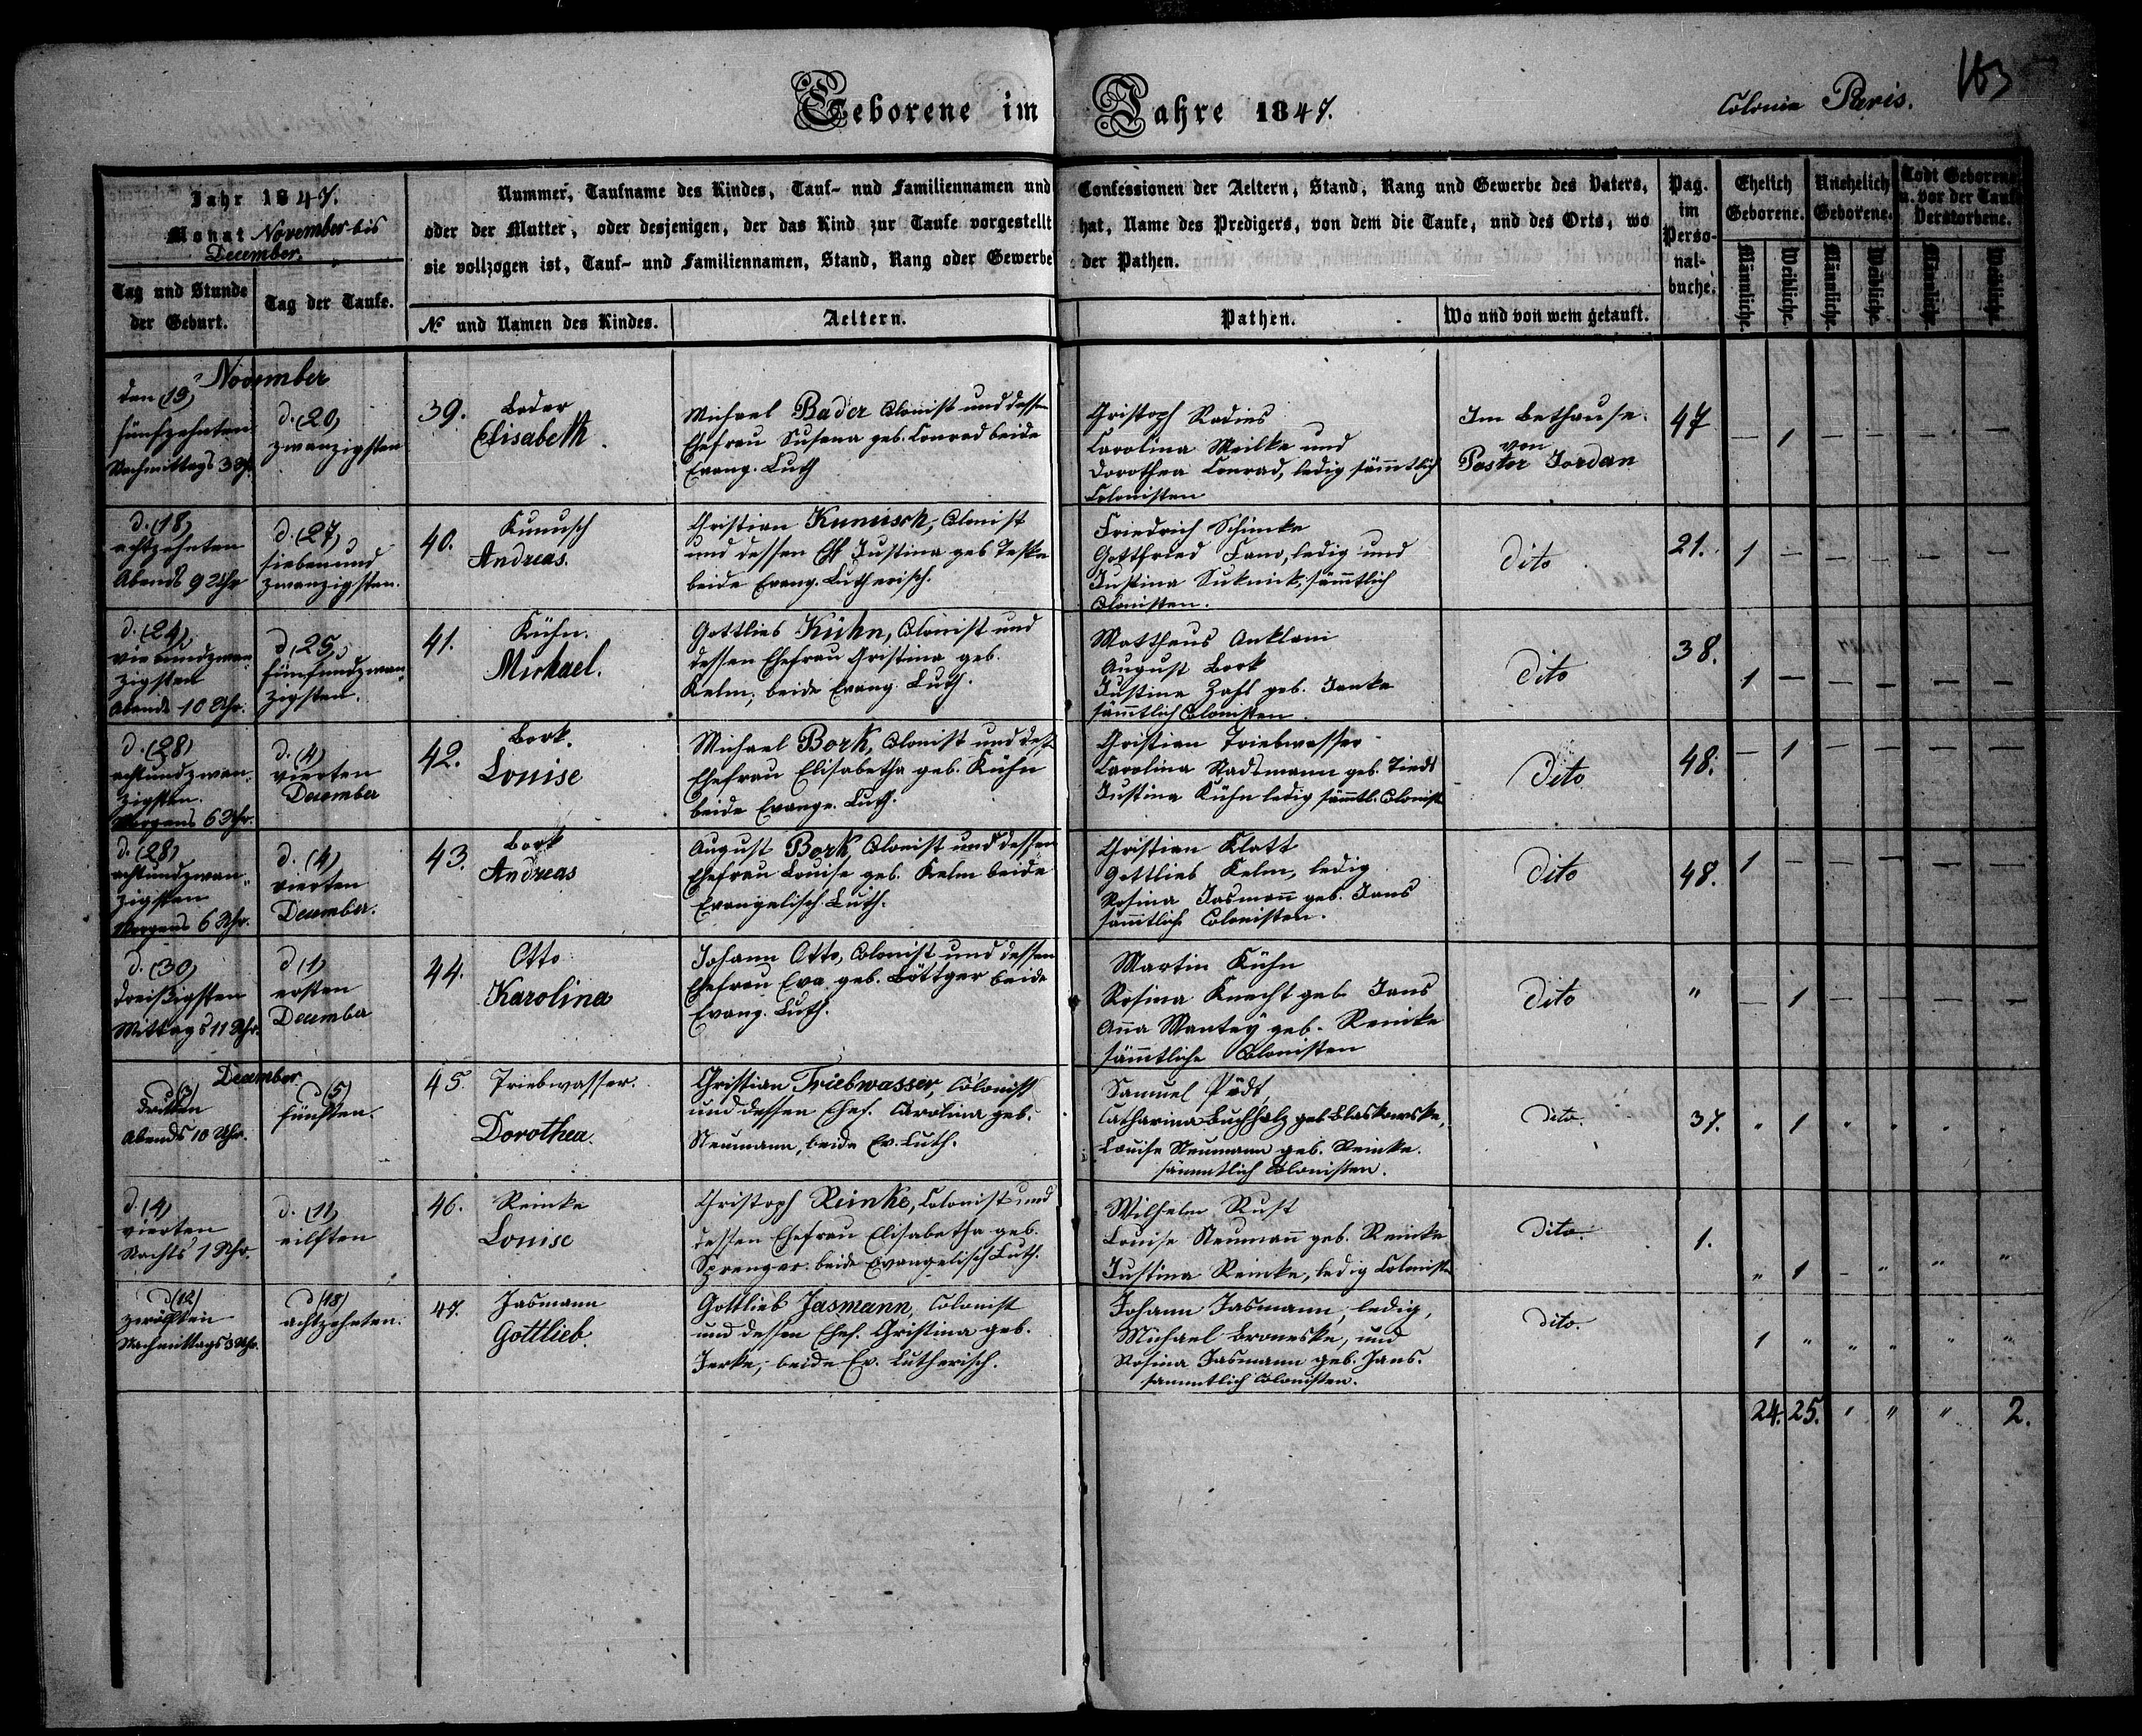 Geborene im Jahre 1847.
Colonie Paris.
163
Jahr 1847.
Monat November bis
December.
Tag und Stunde
der Geburt.
Tag der Taufe.
Nummer, Taufname des Kindes, Tauf- und Familiennamen und Confessionen der Aeltern, Stand, Rang und Gewerbe des Vaters,
oder der Mutter, oder desjenigen, der das Kind zur Taufe vorgestellt hat, Name des Predigers, von dem die Taufe, und des Orts, wo
sie vollzogen ist, Tauf- und Familiennamen, Stand, Rang oder Gewerbe der Pathen.
№ und Namen des Kindes.
Aeltern.
Pathen.
Wo und von wem getauft.
Pag.
im
Perso-
nal-
buche.
Ehelich
Geborene.
Unehelich
Geborene.
Todt Geborene
u. vor der Taufe
Verstorbene.
Männliche.
Weibliche.
Männliche.
Weibliche.
Männliche.
Weibliche.
November
den (15)
fünfzehnten
Nachmittags 3 Uhr
d. (20)
zwanzigsten
39. Bader
Elisabeth.
Michael Bader Colonist und dessen
Ehefrau Susena geb. Conrad beide
Evang. Luth
Christoph Radies
Carolina Meilke und
Dorothea Conrad, ledig sämtlich
Colonisten
Im Bethause.
von
Pastor Jordan
47
— 1 — — — —
d. (18)
achtzehnten
Abends 9 Uhr
d. (27)
siebenund
zwanzigsten.
40. Kunusch
Andreas.
Christian Kunusch, Colonist
und dessen Ehf Justina geb Teske
beide Evang. Lutherisch.
Friedrich Schimke
Gottfried ledig und
Justina sämmtlich
Colonisten.
dito
21.
1 — — — — —
d. (24)
vierundzwan-
zigsten
Abends 10 Uhr.
d. 25.
fünfundzwan-
zigsten.
41. Kühn.
Michael.
Gottlieb Kühn, Colonist und
dessen Ehefrau Christina geb.
Kelm, beide Evang. Luth.
Matthaus Anklam
August Bork
Justina Zahl geb. Janke
sämtlich Colonisten.
dito
38.
1 — — — — —
d. (28)
achtundzwan-
zigsten.
Morgens 6 Uhr.
d. (4)
vierten
December
42. Bork.
Louise
Michael Bork, Colonist und dess.
Ehefrau Elisabetha geb. Kühn
beide Evange. Luth.
Christian Triebwasser
Carolina Radsmann geb. Tiedt
Justina Kühn ledig sämtl. Colonist
dito
48.
— 1 — — — —
d. (28)
achtundzwan-
zigsten
Morgens 6 Uhr.
d. (4)
vierten
December.
43. Bork
Andreas
August Bork, Colonist und dessen
Ehefrau Louise geb. Kelm beide
Evangelisch Luth.
Christian Klatt
Gottlieb Kelm, ledig
Rosina Jasmañ geb. Jans
sämtliche Colonisten.
dito
48.
1 — — — — —
d. (30)
dreißigsten
Mittags 11 Uhr.
d (1)
ersten
December
44. Otto
Karolina
Johann Otto, Colonist und dessen
Ehefrau Eva geb. Böttger beide
Evang. Luth.
Martin Kühn
Rosina Knecht geb Jans
Anna Mantey geb. Reinke
sämtliche Colonisten
dito
"
— 1 — — — —
December
d (3)
dritten
Abends 10 Uhr.
d (5)
fünften.
45. Triebwasser.
Dorothea.
Christian Triebwasser, Colonist
und dessen Ehef. Carolina geb.
Neumann, beide Ev. Luth.
Samuel
Catharina Buchholz geb Blaskowske,
Louise Neumann geb. Reinke.
sämmtlich Colonisten.
dito.
37.
" 1 " " " "
d. (4)
vierten
Nachts 1 Uhr.
d. (11)
eilften
46. Reinke
Louise
Christoph Reinke, Colonist und
dessen Ehefrau Elisabetha geb.
Sprenger. beide Evangelisch Luth.
Wilhelm Rust
Louise Neumañ geb. Reinke
Justina Reinke, ledig Coloniste
dito.
1.
" 1 — " " "
d (12)
zwölften
Nachmittags 3 Uhr.
d (18)
achtzehnten.
47. Jasmann
Gottlieb.
Gottlieb Jasmann, Colonist
und dessen Ehef. Christina geb.
Jerke, beide Ev. Lutherisch.
Johann Jasmann, ledig,
Michael Broneske, und
Rosina Jasmann geb. Jans.
sammtlich Colonisten.
dito.
1 " " " " "
24. 25. " " " 2.